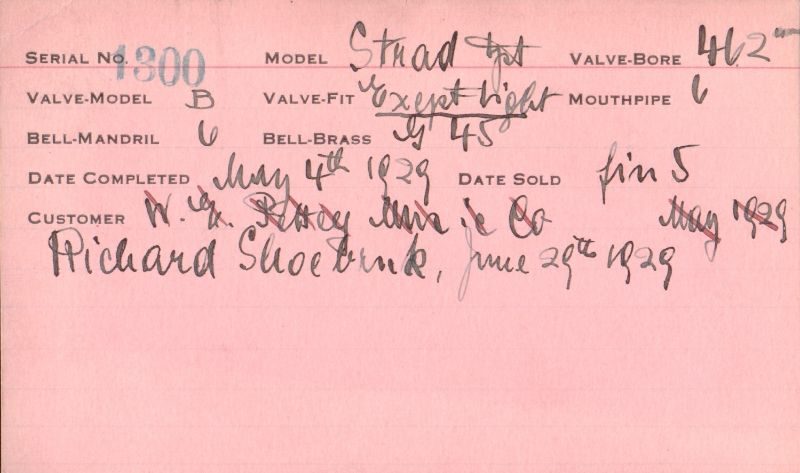 SERIAL NO. 1300 MODEL Strad tpt VALVE-BORE 462"
VALVE-MODEL B VALVE-FIT Exept Light MOUTHPIPE 6
BELL-MANDRIL 6 BELL-BRASS G 45
DATE COMPLETED May 4th 1929 DATE SOLD fin 5
CUSTOMER W. Mus & Co May 1929
Richard Shoebruk, June 29th 1929